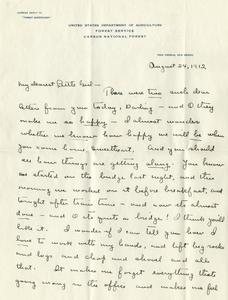 ADDRESS REPLY TO
"FOREST SUPERVISOR"
UNITED STATES DEPARTMENT OF AGRICULTURE
FOREST SERVICE
CARSON NATIONAL FOREST
August 24, 1912
My dearest
There were two such dear
letters from you today, Darling – and O they
make me so happy – I almost wonder
whether we know how happy we will be when
you come home, Sweetheart. And you should
see how things are getting along. You know
we started on the bridge last night, and this
morning we worked on it before breakfast, and
tonight after train time – and now its almost
done – and O its quite a bridge! I think you'll
like it. I wonder if I can tell you how I
love to work with my hands, and lift big rocks
and logs and chop and shovel and all
that. It makes me forget everything thats
going wrong in the office and makes me feel